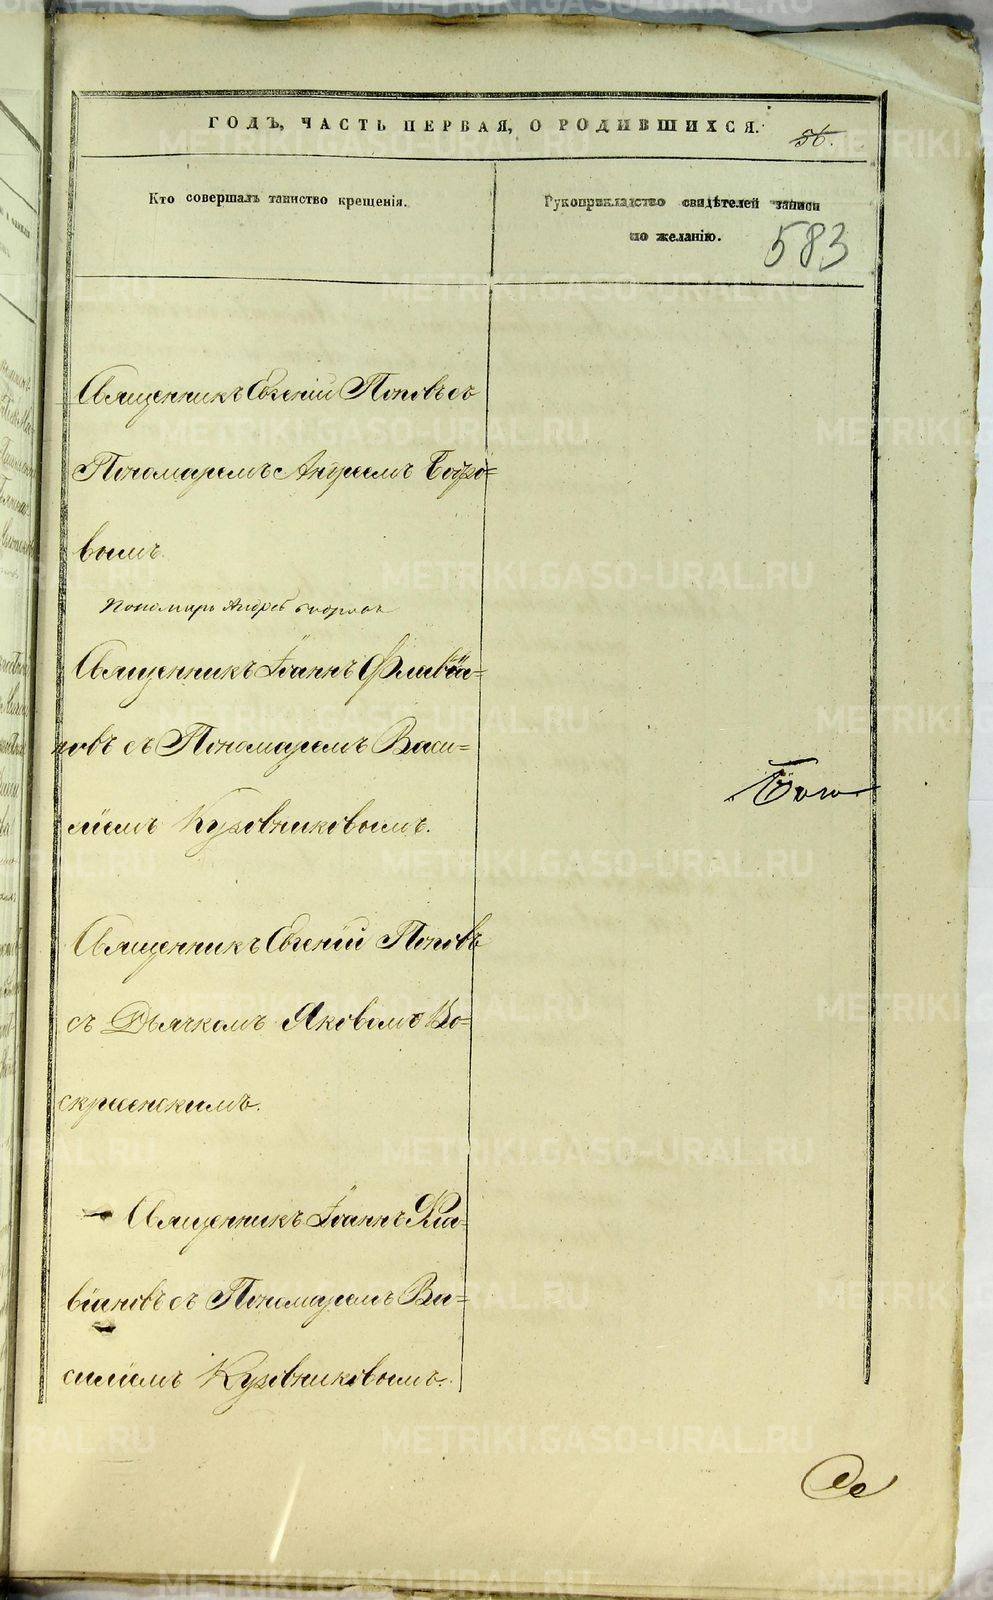 ГОДЪ, ЧАСТЬ ПЕРВАЯ, О РОДИВШИХСЯ.
56.
Кто совершалъ таинство крещенія.
Рукоприкладство свидѣтелей записи
по желанію.
583
Священникъ Евгеній Поповъ съ
Пономаремъ Андреемъ Бобро=
вымъ.
Пономарь Андрей Бобровъ
Священникъ Іоаннъ Флавіа=
новъ съ Пономаремъ Васи=
ліемъ Кузовниковымъ.
Священникъ Евгеній Поповъ
съ Дьячкомъ Яковомъ Во=
скресенскимъ.
Священникъ Іоаннъ Фла=
віановъ съ Пономаремъ Ва=
силіемъ Кузовниковымъ.
METRIKI.GASO-URAL.RU